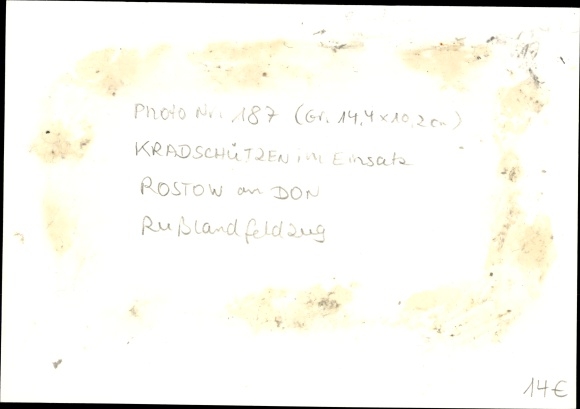 Photo Nr. 187 (Gr. 14,4x10,2cm)
KRADSCHÜTZEN im Einsatz
ROSTOW am DON
Rußlandfeldzug
14€